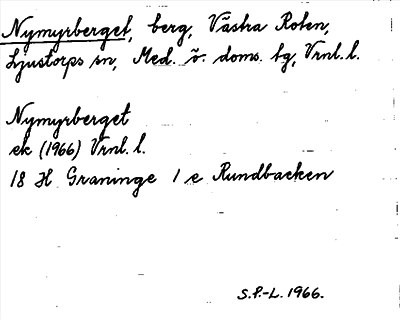 Nymyrberget, berg, Västra Roten,
Ljustorps sn, Med. ö. doms. tg, Vrnl. l.
Nymyrberget
ek (1966) Vrnl. l.
18 H Graninge 1 e Rundbacken
S.P.-L. 1966.